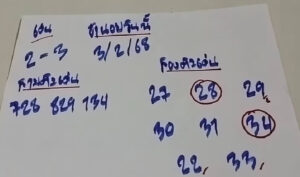 เด่น ฮานอยวันนี้
2 = 3 3/2/68
สามตัวเด่น สองตัวเด่น
728 829 134 27 28 29,
30 31 34
22, 33,